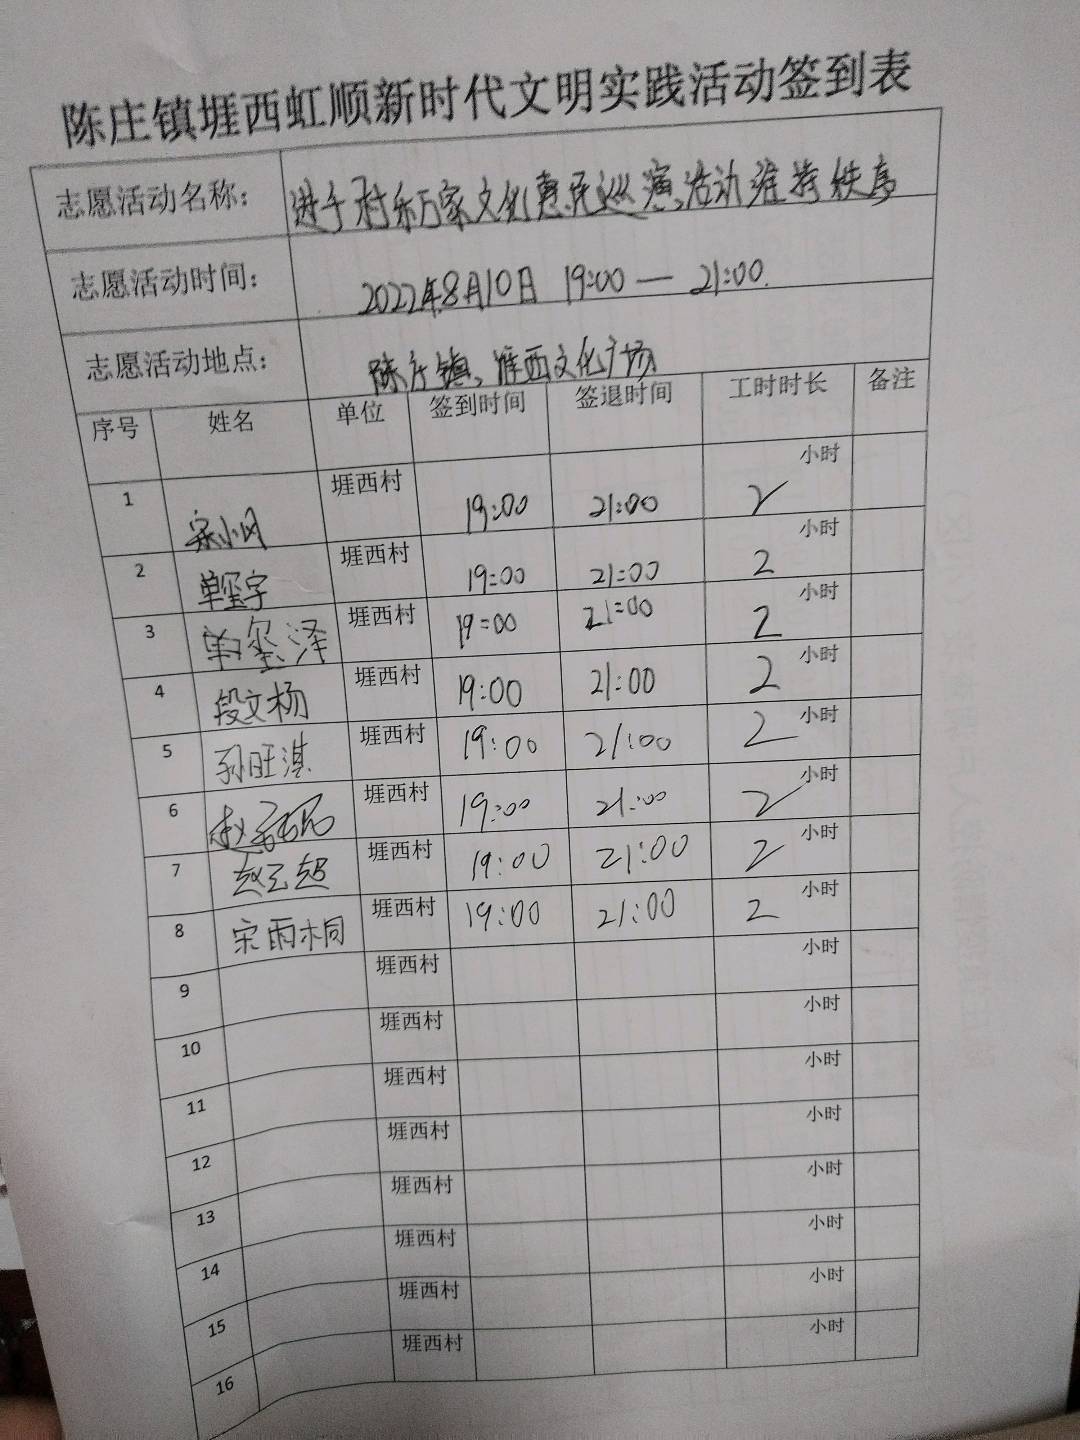 陈庄镇堐西虹顺新时代文明实践活动签到表
志愿活动名称： 进千村乐万家文化惠民巡演活动维持秩序
志愿活动时间： 2022年8月10日 19:00 — 21:00.
志愿活动地点： 陈庄镇、堐西文化广场
序号 姓名 单位 签到时间 签退时间 工时时长 备注
1 宋小风 堐西村 19:00 21:00 2 小时
2 单玺宇 堐西村 19:00 21:00 2 小时
3 单玺泽 堐西村 19:00 21:00 2 小时
4 段文杨 堐西村 19:00 21:00 2 小时
5 孙旺淇 堐西村 19:00 21:00 2 小时
6 赵 堐西村 19:00 21:00 2 小时
7 赵云超 堐西村 19:00 21:00 2 小时
8 宋雨桐 堐西村 19:00 21:00 2 小时
9 堐西村 小时
10 堐西村 小时
11 堐西村 小时
12 堐西村 小时
13 堐西村 小时
14 堐西村 小时
15 堐西村 小时
16 堐西村 小时